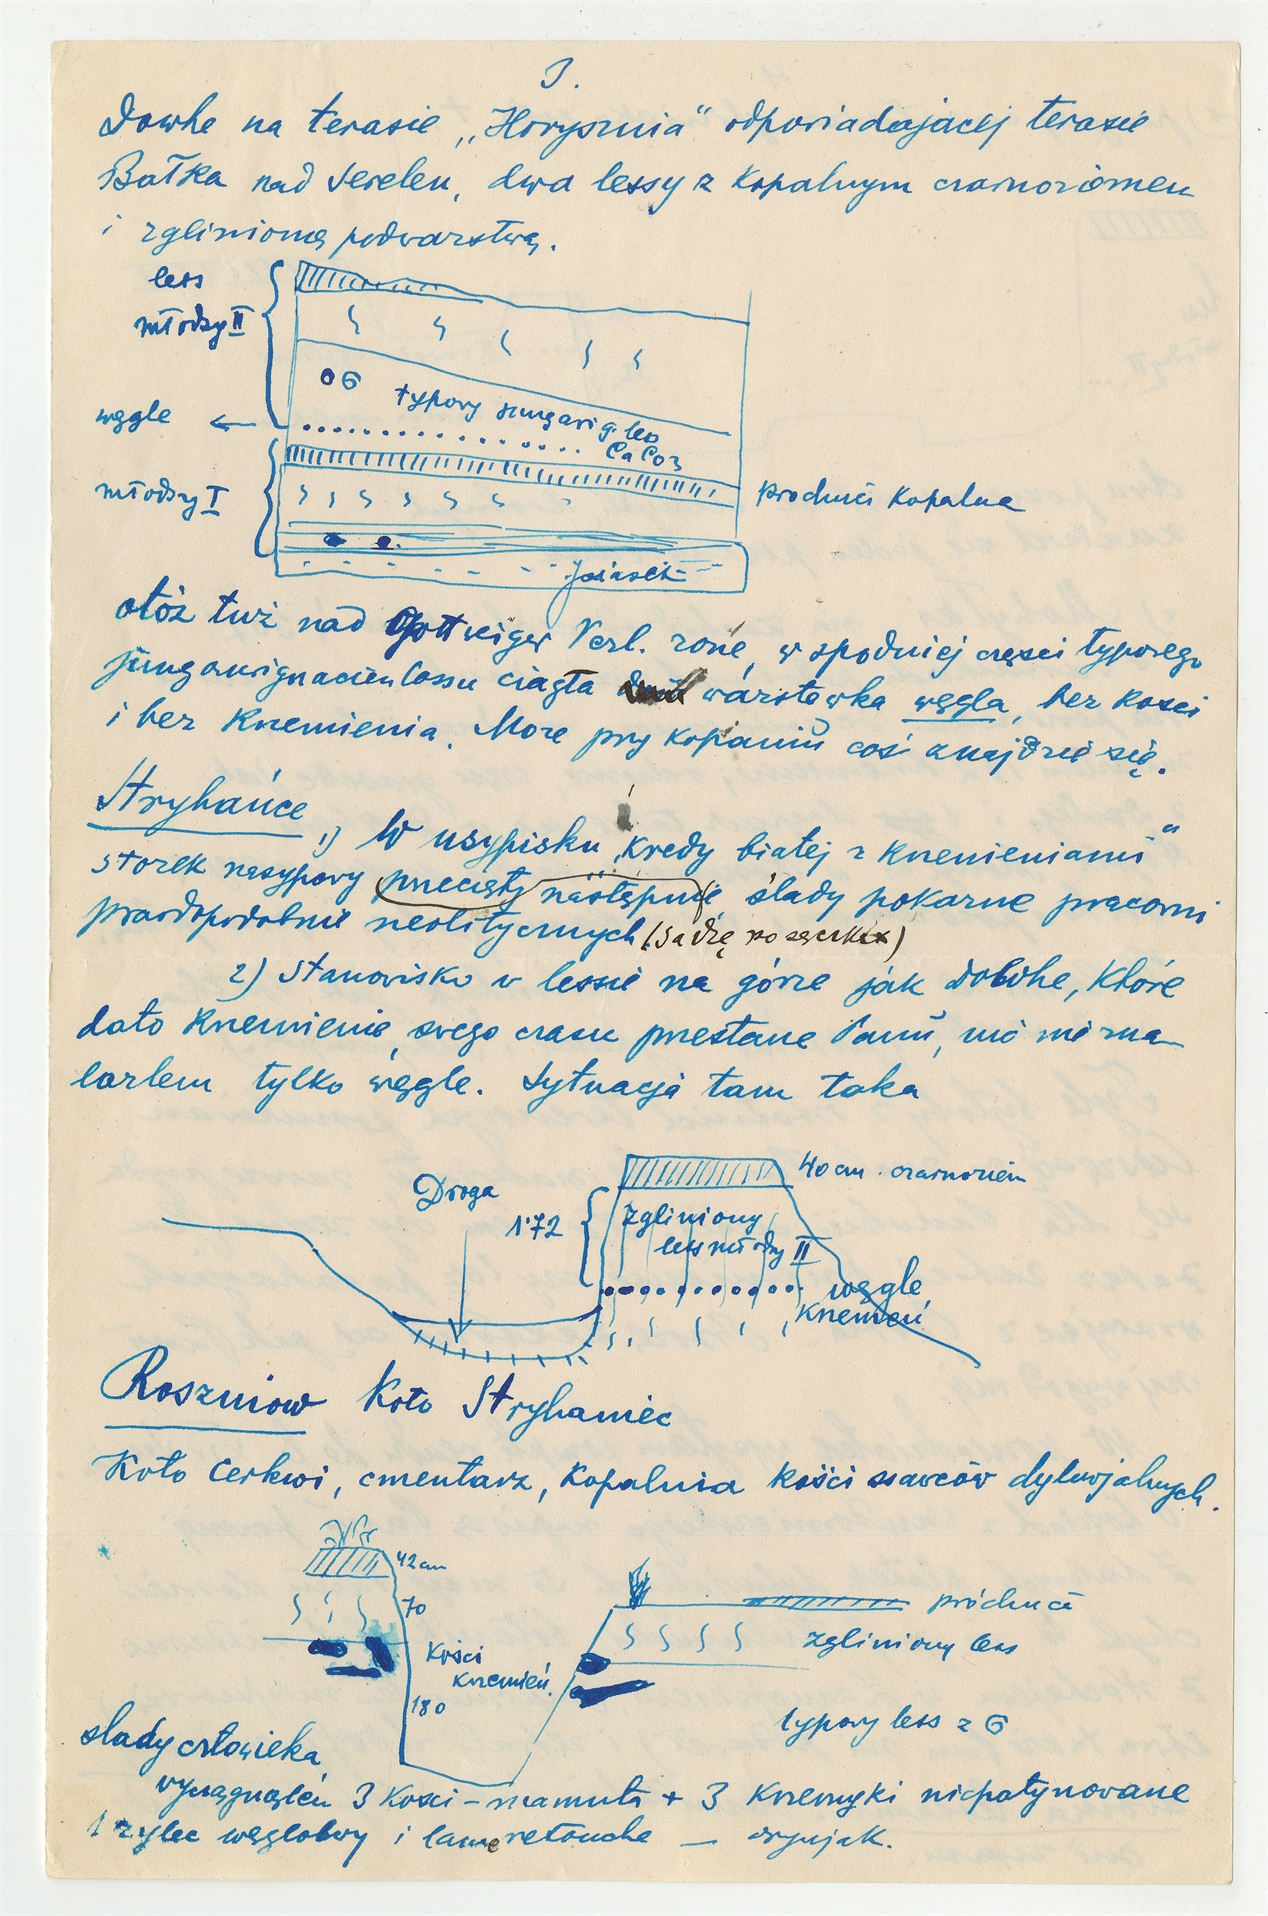 I.
Dowhe na terasie „Horysznia" odpowiadającej terasie
Bałka nad Seretem, dwa lessy z kopalnym czarnoziomem
i zglinioną podwarstwą.
less
młodszy II
typowy jungarig. less
CaCO3
węgle ←
młodszy I
próchnica kopalna
piasek
otóż tuż nad Göttweiger Verl. zone, w spodniej części typowego
ciągła warstewka węgla, bez kości
i bez krzemienia. Może przy kopaniu coś znajdzie się.
Stryhańce
1) W usypisku kredy białej z krzemieniami
stożek nasypowy przecięty następnie ślady pokaźne pracowni
prawdopodobnie neolitycznych (sądzę po sączkach)
2) Stanowisko w lessie na górze jak Dowhe, które
dało krzemienie, swego czasu przesłane Panu, nic nie zna
lazłem tylko węgle. Sytuacja tam taka
Droga
40 cm. czarnoziem
1.72
zgliniony
less młodszy II
węgle
krzemień
Roszniow koło Stryhaniec
Koło cerkwi, cmentarz, kopalnia kości ssawców dyluwjalnych.
42 cm
70
kości
krzemień
180
próchnica
zgliniony less
typowy less z
slady człowieka
wyciągnąłem 3 kości – mamuta + 3 krzemyki niepatynowane
1 rylec węglowy i lame retouche — oryniak.